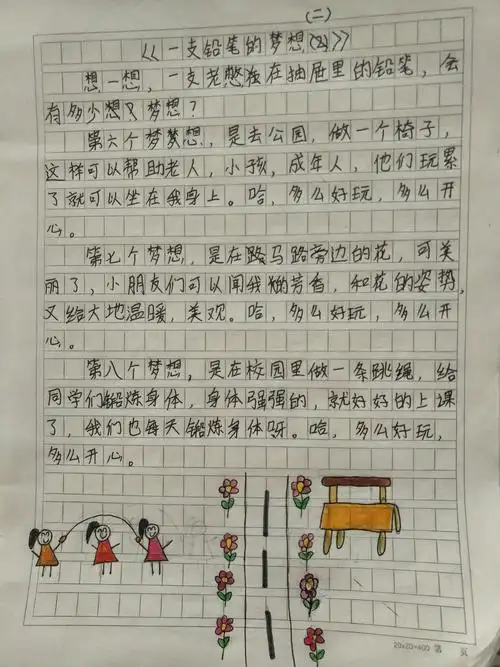 (二)
《一支铅笔的梦想(2)》
想一想，一支老憋在抽屉里的铅笔，会
有多少想又梦想？
第六个梦梦想，是去公园，做一个椅子，
这样可以帮助老人，小孩，成年人，他们玩累
了就可以坐在我身上。哈，多么好玩，多么开
心。
第七个梦想，是在路马路旁边的花，可美
丽了，小朋友们可以闻我的芳香，和花的姿势，
又给大地温暖，美观。哈，多么好玩，多么开
心。
第八个梦想，是在校园里做一条跳绳，给
同学们锻炼身体，身体强强的，就好好的上课
了，我们也每天锻炼身体呀。哈，多么好玩，
多么开心。
20×20=400 第 页